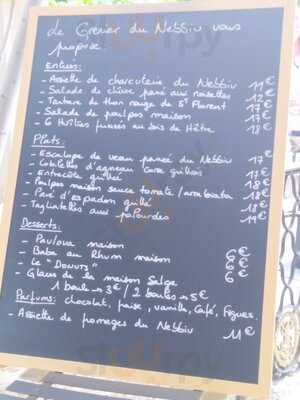 Le Grenier du Nebbiu vous
propose
Entrées:
- Assiette de charcuterie du Nebbiu 11€
- Salade de chèvre pané aux noisettes 12€
- Tartare de thon rouge de St Florent 17€
- Salade de poulpes maison 17€
- 6 Huîtres fumées au bois de Hêtre 18€
Plats:
- Escalope de veau panée du Nebbiu 17€
- Cotelettes d'agneau Corse grillées 17€
- Entrecôte grillée 18€
- Poulpes maison sauce tomate/arrabiata 18€
- Pavé d'espadon grillé 18€
- Tagliatelles aux palourdes 19€
Desserts:
- Pavlova maison 6€
- Baba au Rhum maison 6€
- Le "Donuts" 6€
- Glaces de la maison Salge
1 boule → 3€ / 2 boules → 5€
Parfums: chocolat, fraise, vanille, Café, Figues.
- Assiette de fromages du Nebbiu 11€